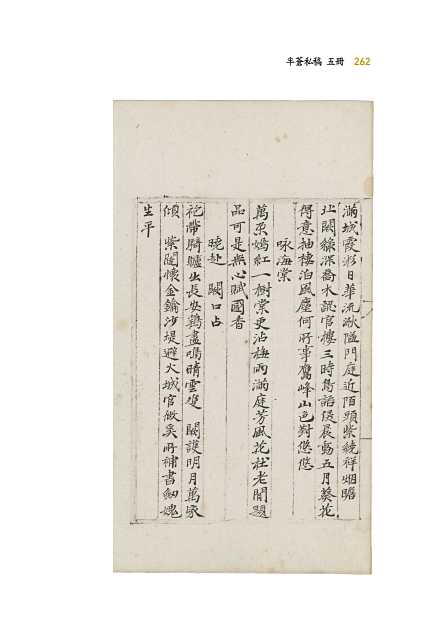 半蒼私稿 五冊 262
滿城霞彩日華流湫隘門庭近陌頭紫綬祥烟瞻
北闕綠深喬木認官樓三時鳥語侵晨動五月葵花
得意抽棲泊風塵何所事鷹峰山色對悠悠
咏海棠
萬朶嫣紅一樹棠更沾梅雨滿庭芳風花杜老閒題
品可是無心賦國香
曉赴 闕口占
袍帶騎驢出長安鷄盡鳴晴雲雙 闕護明月萬家
傾 紫闥懷金鑰沙堤避火城官微奚所補書劍媿
生平